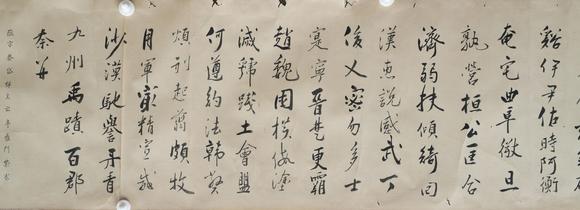 谿伊尹佐時阿衡
奄宅曲阜微旦
孰營桓公匡合
濟弱扶傾綺回
漢惠說感武丁
俊乂密勿多士
寔寧晉楚更霸
趙魏困橫假塗
滅虢踐土會盟
何遵約法韓弊
煩刑起翦頗牧
用軍最精宣威
沙漠馳譽丹青
九州禹蹟百郡
秦并